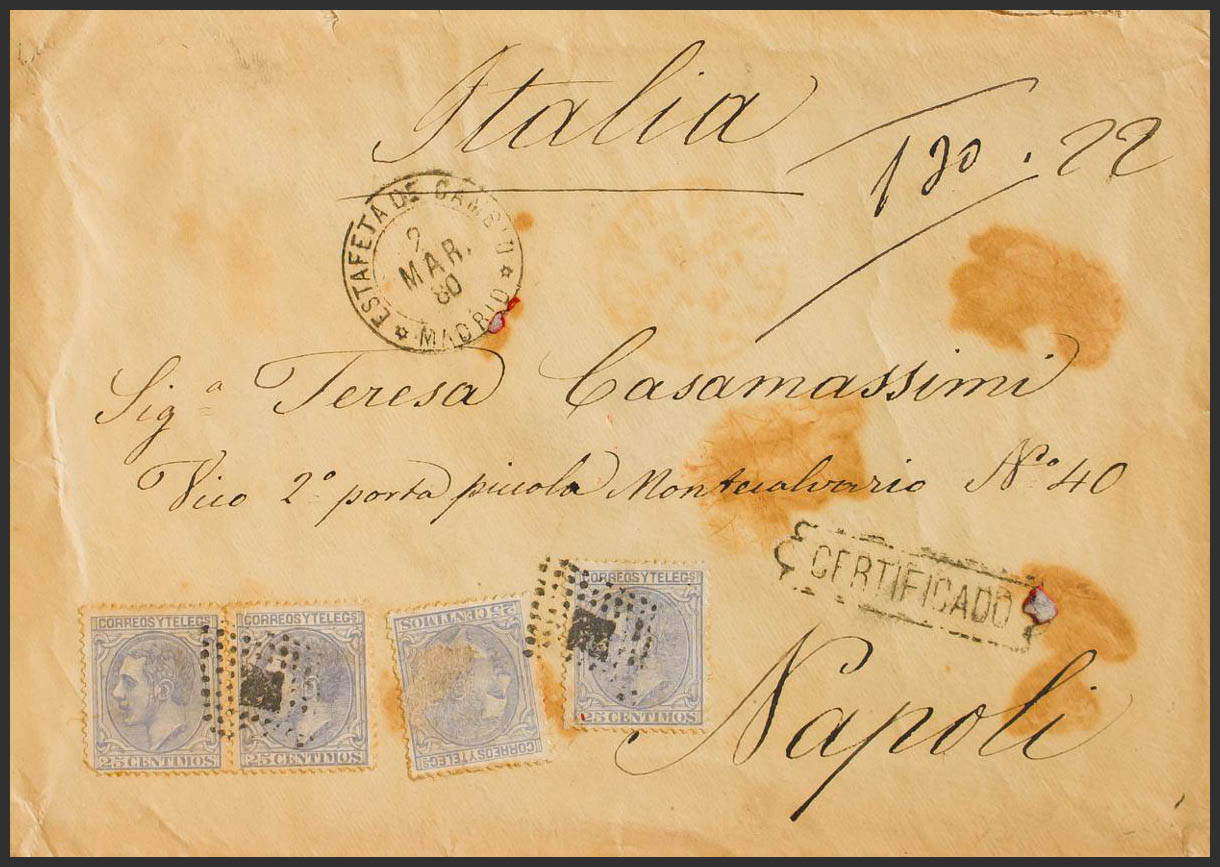 Italia
130 . 22
ESTAFETA DE CAMBIO
2
MAR.
80
MADRID
Sigª Teresa Casamassimi
Vico 2º porta piccola Montecalvario Nº 40
CERTIFICADO
Napoli
CORREOS Y TELEGS
25 CENTIMOS
CORREOS Y TELEGS
25 CENTIMOS
25 CENTIMOS
CORREOS Y TELEGS
CORREOS Y TELEGS
25 CENTIMOS